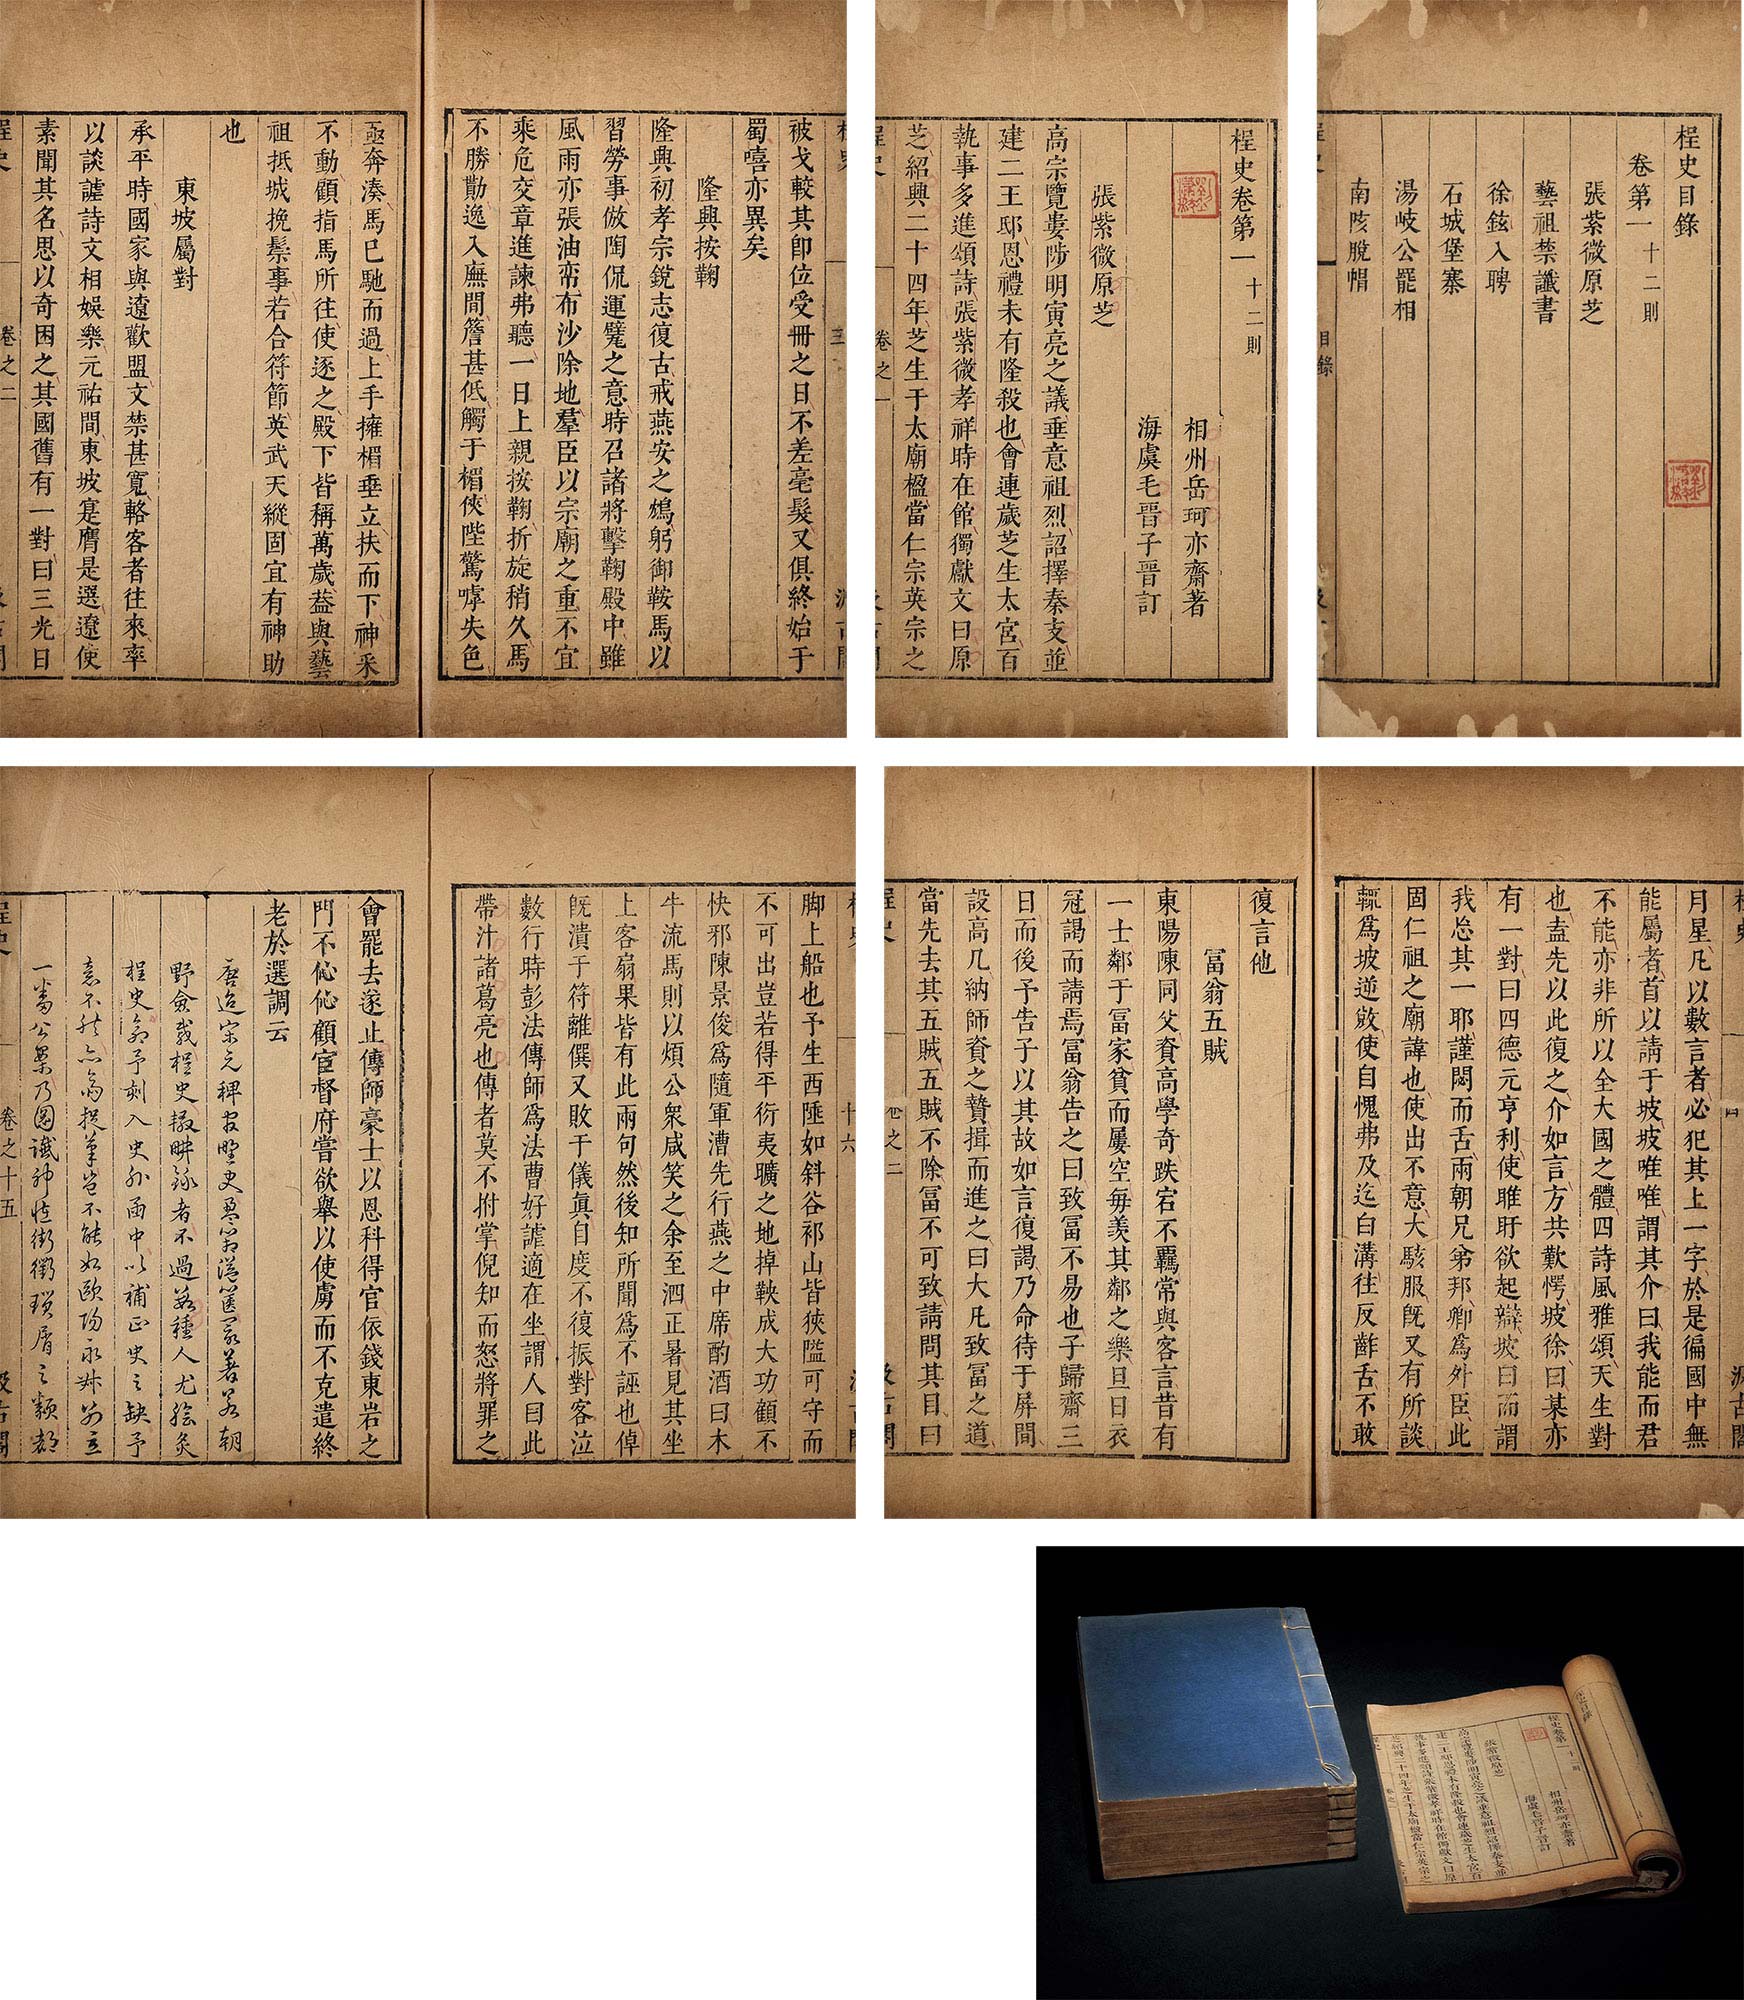 桯史目錄
卷第一 十二則
張紫微原芝
藝祖禁讖書
徐鉉入聘
石城堡寨
湯岐公罷相
南陔脫帽
目錄
桯史卷第一 十二則
相州岳珂亦齋著
海虞毛晉子晉訂
張紫微原芝
高宗覽婁陟明寅亮之議垂意祖烈詔擇秦支並
建二王邸恩禮未有隆殺也會連歲芝生太宮百
執事多進頌詩張紫微孝祥時在館獨獻文曰原
芝紹興二十四年芝生于太廟楹當仁宗英宗之
卷之一
被戈較其卽位受冊之日不差毫髮又俱終始于
蜀嘻亦異矣
隆興按鞠
隆興初孝宗銳志復古戒燕安之鴆躬御鞍馬以
習勞事倣陶侃運甓之意時召諸將擊鞠殿中雖
風雨亦張油帟布沙除地羣臣以宗廟之重不宜
乘危交章進諫弗聽一日上親按鞠折旋稍久馬
不勝勩逸入廡間簷甚低觸于楣俠陛驚嘑失色
亟奔湊馬已馳而過上手擁楣垂立扶而下神采
不動顧指馬所往使逐之殿下皆稱萬歲葢與藝
祖抵城挽鬃事若合符節英武天縱固宜有神助
也
東坡屬對
承平時國家與遼歡盟文禁甚寬輅客者往來率
以談謔詩文相娛樂元祐間東坡寔膺是選遼使
素聞其名思以奇困之其國舊有一對曰三光日
卷之二
月星凡以數言者必犯其上一字於是徧國中無
能屬者首以請于坡坡唯唯謂其介曰我能而君
不能亦非所以全大國之體四詩風雅頌天生對
也盍先以此復之介如言方共歎愕坡徐曰某亦
有一對曰四德元亨利使睢盱欲起辯坡曰而謂
我忘其一耶謹閟而舌兩朝兄弟邦卿爲外臣此
固仁祖之廟諱也使出不意大駭服旣又有所談
輒爲坡逆敚使自愧弗及迄白溝往反齚舌不敢
復言他
冨翁五賊
東陽陳同父資高學奇跌宕不羈常與客言昔有
一士鄰于冨家貧而屢空每羡其鄰之樂旦日衣
冠謁而請焉冨翁告之曰致冨不易也子歸齋三
日而後予告子以其故如言復謁乃命待于屏間
設高几納師資之贄揖而進之曰大凡致冨之道
當先去其五賊五賊不除冨不可致請問其目曰
卷之二
十六
脚上船也予生西陲如斜谷祁山皆狹隘可守而
不可出豈若得平衍夷曠之地掉鞅成大功顧不
快邪陳景俊爲隨軍漕先行燕之中席酌酒曰木
牛流馬則以煩公衆咸笑之余至泗正暑見其坐
上客扇果皆有此兩句然後知所聞爲不誣也倬
旣潰于符離僎又敗于儀眞自度不復振對客泣
數行時彭法傳師爲法曹好謔適在坐謂人曰此
帶汁諸葛亮也傳者莫不拊掌倪知而怒將罪之
會罷去遂止傳師豪士以恩科得官依錢東岩之
門不伈伈顧宦督府嘗欲舉以使虜而不克遣終
老於選調云
唐迄宋元稗官野史盈箱溢篋冣著若朝
野僉載桯史輟畊錄者不過數種人尤膾炙
桯史合予刻入史外函中以補正史之缺予
意不然亦為捉筆豈不能如歐陽永叔另立
一番公案乃圖讖神怪街衢瑣屑之類都
卷之十五
汲古閣